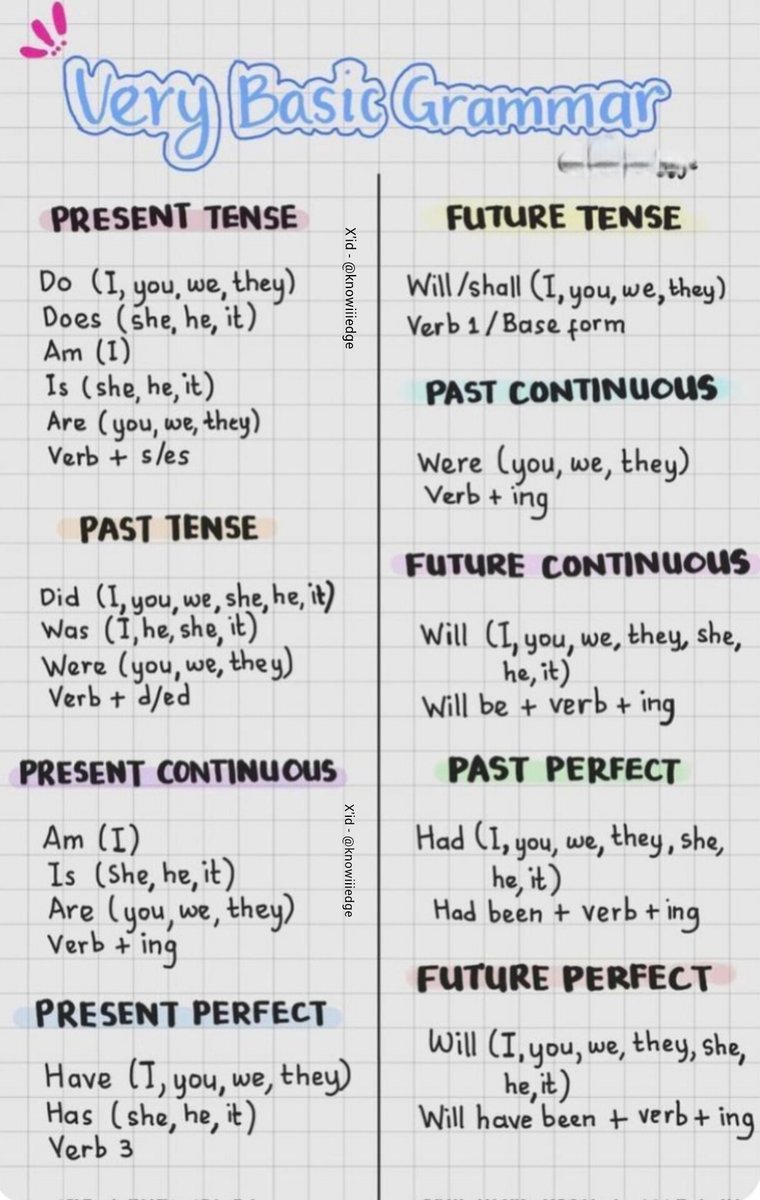 Very Basic Grammar
PRESENT TENSE
Do (I, you, we, they)
Does (she, he, it)
Am (I)
Is (she, he, it)
Are (you, we, they)
Verb + s/es
PAST TENSE
Did (I, you, we, she, he, it)
Was (I, he, she, it)
Were (you, we, they)
Verb + d/ed
PRESENT CONTINUOUS
Am (I)
Is (She, he, it)
Are (you, we, they)
Verb + ing
PRESENT PERFECT
Have (I, you, we, they)
Has (she, he, it)
Verb 3
X'id - @knowiiiedge
X'id - @knowiiiedge
FUTURE TENSE
Will/shall (I, you, we, they)
Verb 1/Base form
PAST CONTINUOUS
Were (you, we, they)
Verb + ing
FUTURE CONTINUOUS
Will (I, you, we, they, she,
he, it)
Will be + verb + ing
PAST PERFECT
Had (I, you, we, they, she,
he, it)
Had been + verb + ing
FUTURE PERFECT
Will (I, you, we, they, she,
he, it)
Will have been + verb + ing